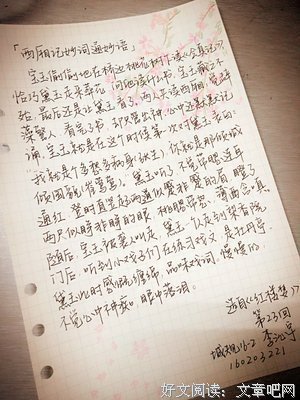 「西厢记妙词通妙语」
宝玉偷偷地在桥边桃花树下读《会真记》
恰巧黛玉走来葬花,问他读什么书,宝玉藏之不
最后还是让黛玉看了,两人共读西厢,觉辞
藻警人,看完了书,却只管出神,心中还默默记
诵。宝玉就是在这个时候第一次对黛玉表白:
"我就是个多愁多病身(状),你就是那倾城
倾国貌(莺莺)。黛玉听了不觉带腮连耳
通红,登时直竖起两道似蹙非蹙的眉,瞪了
两只似睁非睁的眼,桃腮带怒,薄面含嗔。
随后,宝玉被袭人叫走,黛玉一人走到梨香院
门口,听到小戏子们在练习戏文,是牡丹亭,
黛玉此时感慨缠绵,品味戏词,慢慢的,
不觉心中神痴,眼中落泪。
选自《红楼梦》
第23回
城规16-2 李
160203221
好文阅读:文章吧网